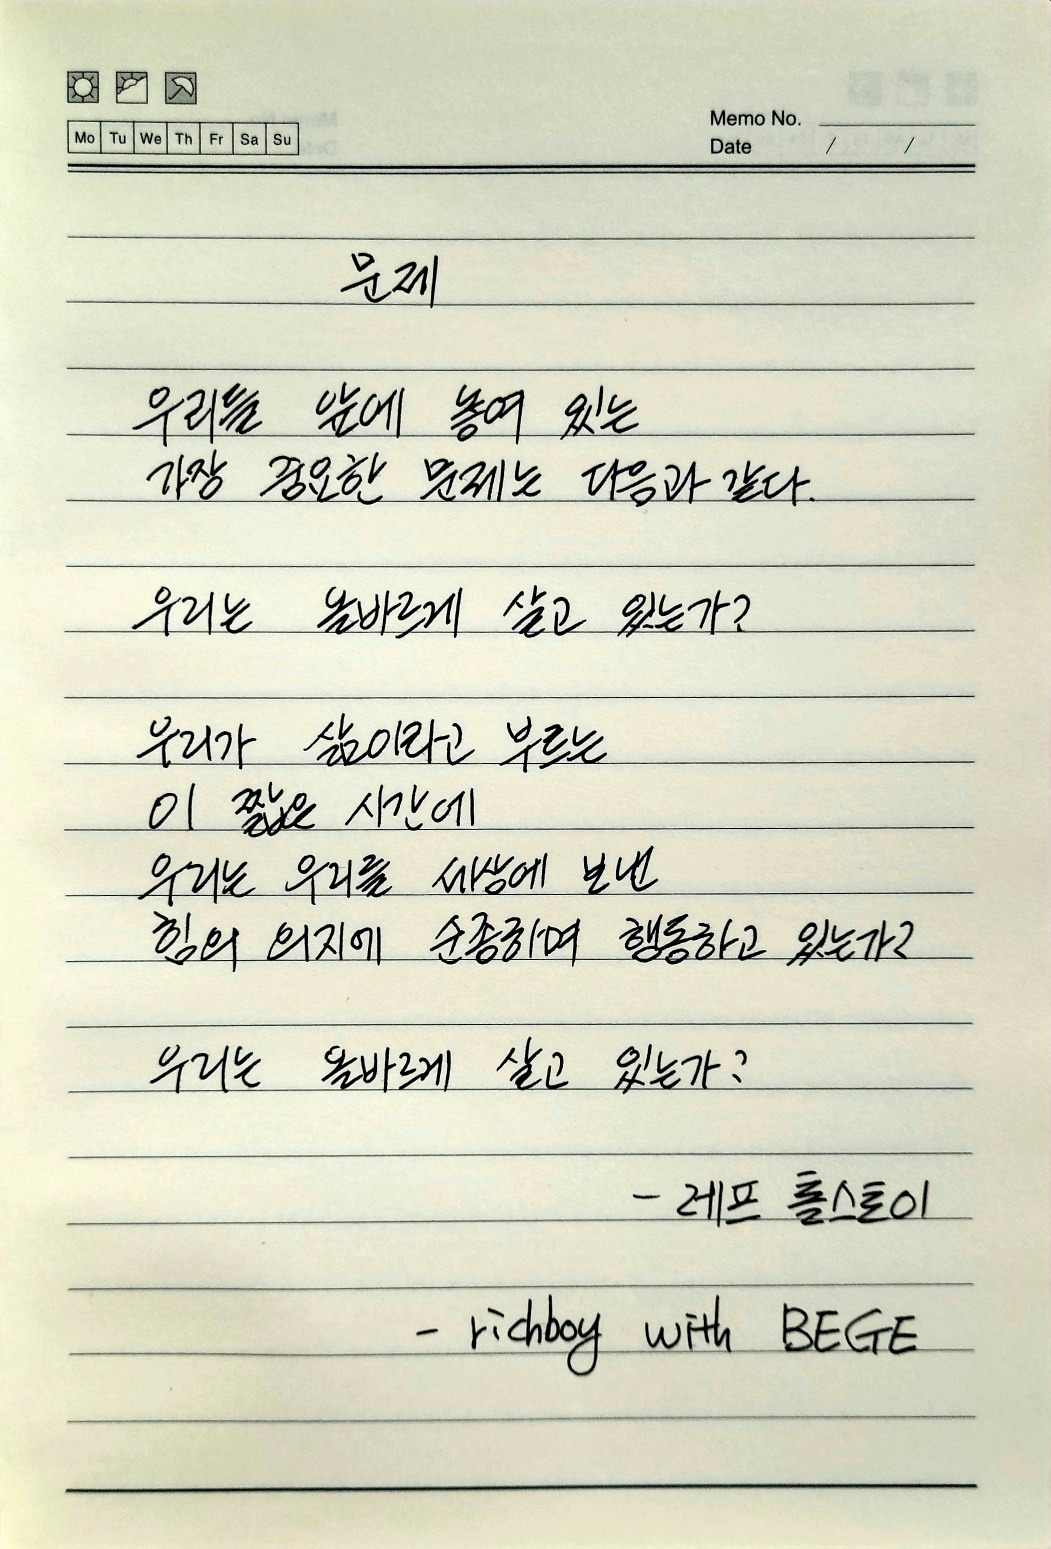 Mo Tu We Th Fr Sa Su
Memo No.
Date / /
문제
우리들 앞에 놓여 있는
가장 중요한 문제는 다음과 같다.
우리는 올바르게 살고 있는가?
우리가 삶이라고 부르는
이 짧은 시간에
우리는 우리를 세상에 보낸
힘의 의지에 순종하며 행동하고 있는가?
우리는 올바르게 살고 있는가?
- 레프 톨스토이
- richboy with BEGE